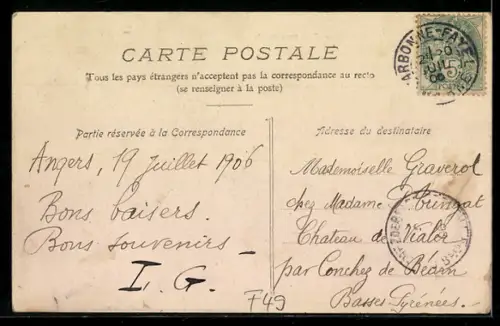 CARTE POSTALE
Tous les pays étrangers n'acceptent pas la correspondance au recto
(se renseigner à la poste)
Partie réservée à la Correspondance
Angers, 19 Juillet 1906
Bons baisers.
Bons souvenirs —
I. G.
F49
Adresse du destinataire
Mademoiselle Graverol
chez Madame
Chateau de Vialer
par Conchez de Béarn
Basses-Pyrénées.
5